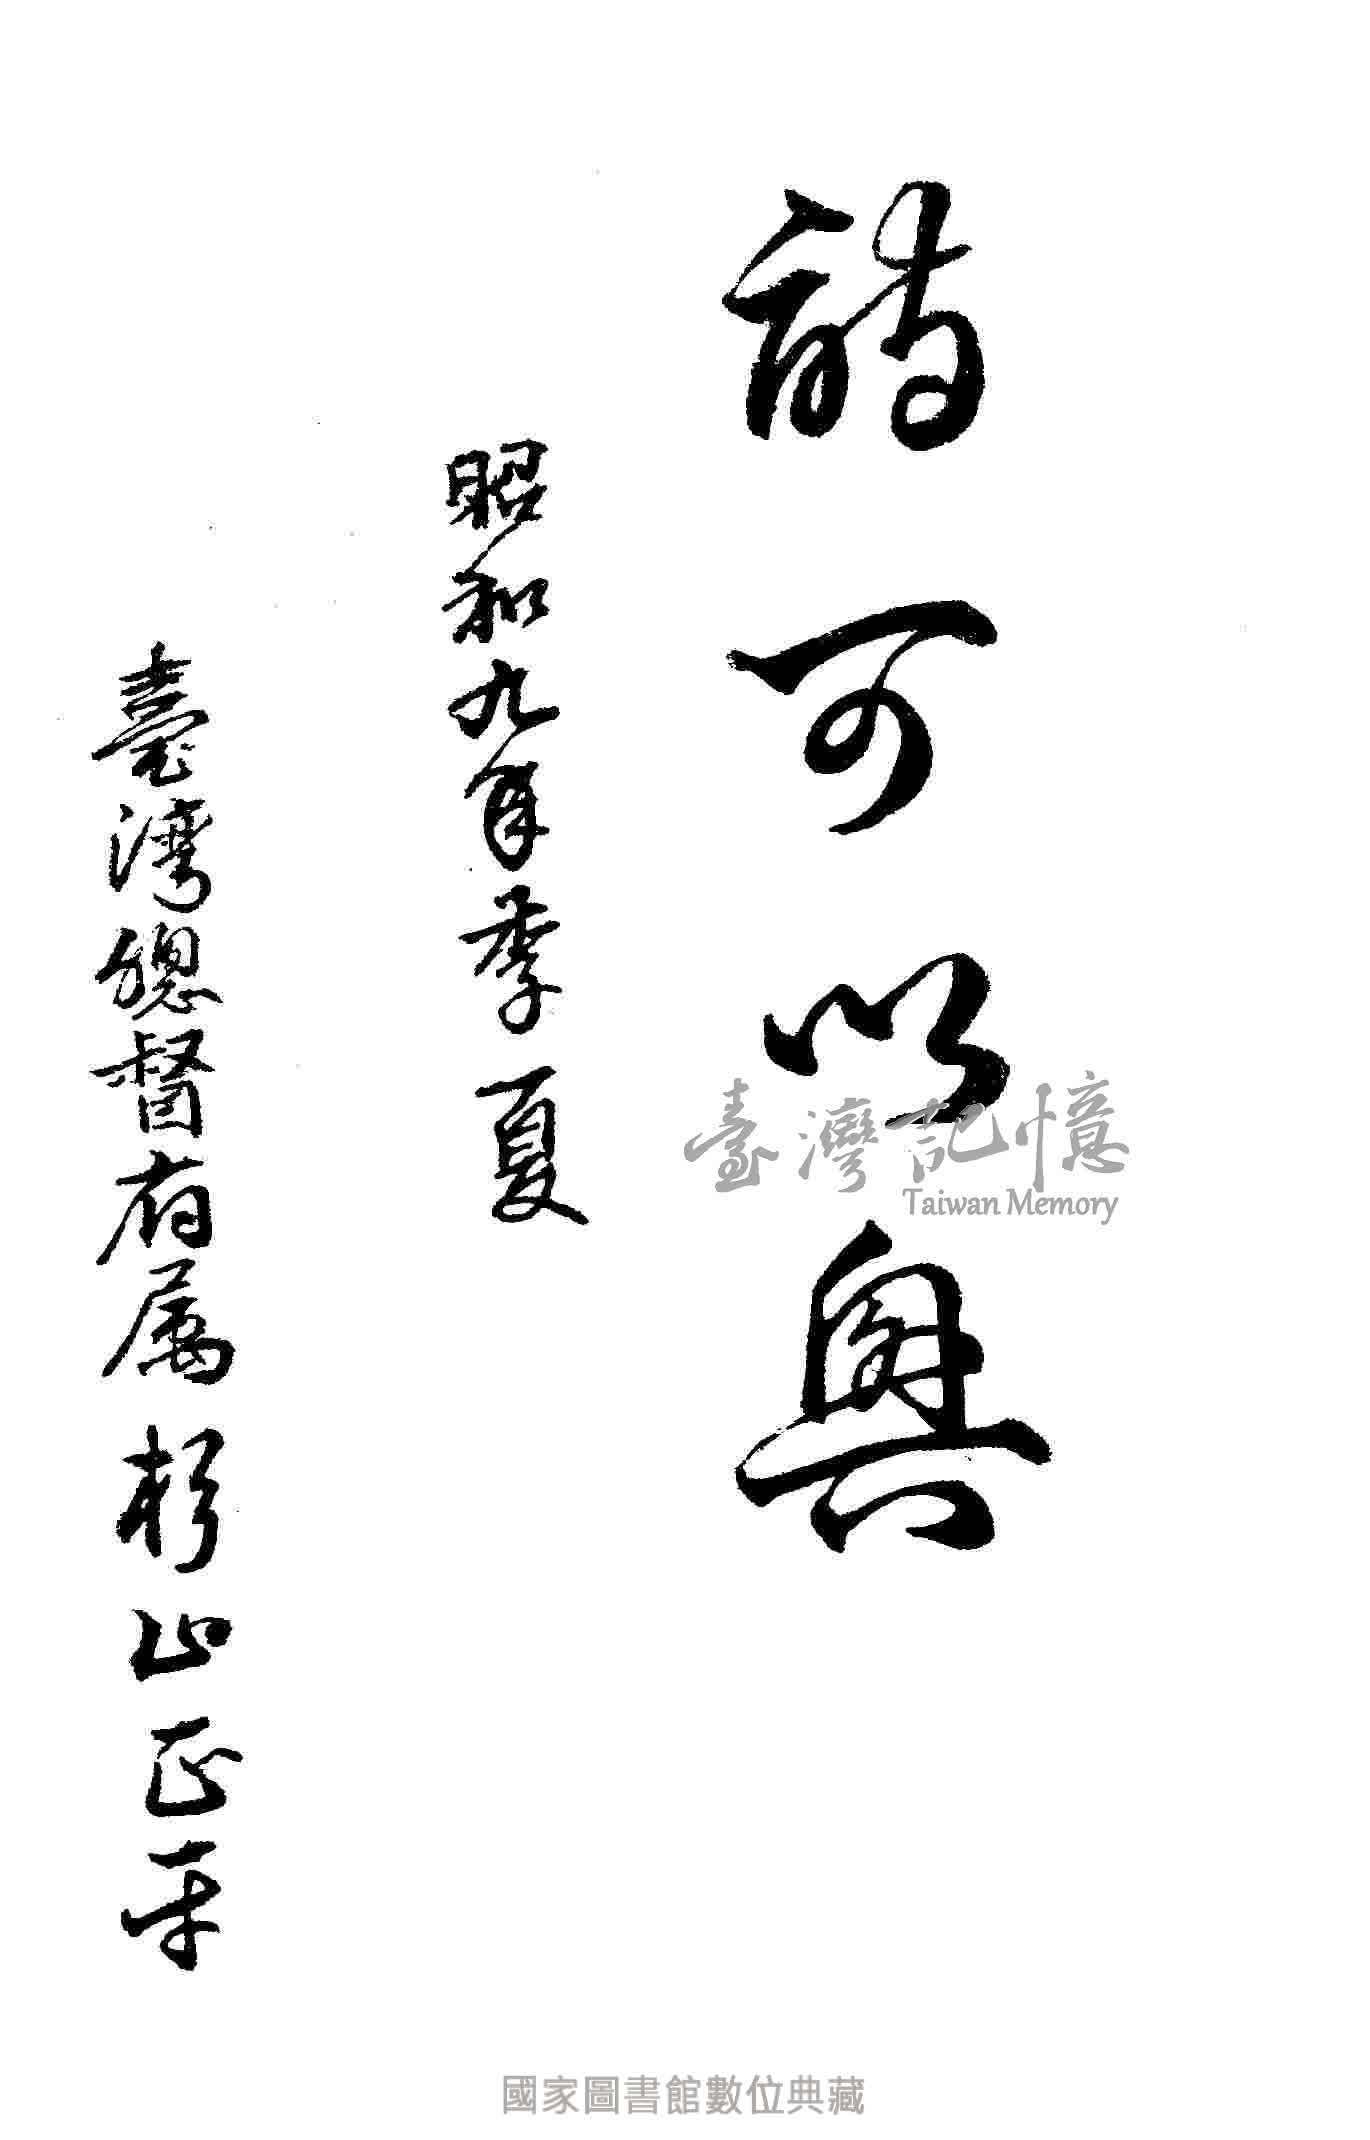 詩可以興
昭和九年季夏
臺灣總督府属 杉山正平
臺灣記憶
Taiwan Memory
國家圖書館數位典藏